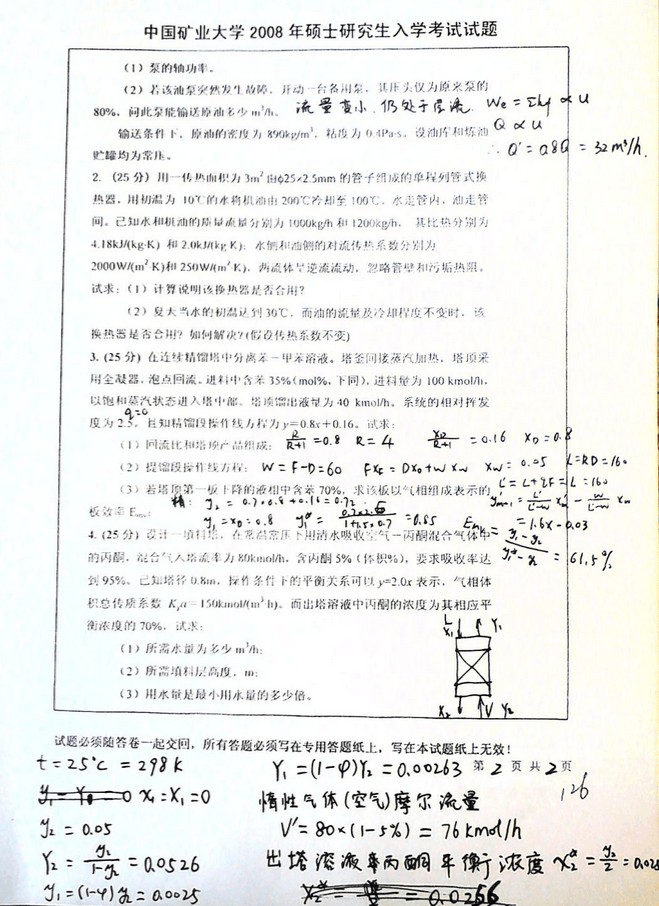 中国矿业大学 2008 年硕士研究生入学考试试题
（1）泵的轴功率。
（2）若该油泵突然发生故障，开动一台备用泵，其压头仅为原来泵的
80%，问此泵能输送原油多少 m³/h。 流量变小，仍处于层流 We = Σhf ∝ u
Q ∝ u
输送条件下，原油的密度为 890kg/m³，粘度为 0.4Pa·s。设油库和炼油
贮罐均为常压。 ∴ Q' = 0.8Q = 32 m³/h.
2.（25 分）用一传热面积为 3m² 由φ25×2.5mm 的管子组成的单程列管式换
热器，用初温为 10℃的水将机油由 200℃冷却至 100℃，水走管内，油走管
间。已知水和机油的质量流量分别为 1000kg/h 和 1200kg/h，其比热分别为
4.18kJ/(kg·K) 和 2.0kJ/(kg·K)；水侧和油侧的对流传热系数分别为
2000W/(m²·K)和 250W/(m²·K)，两流体呈逆流流动，忽略管壁和污垢热阻。
试求：（1）计算说明该换热器是否合用？
（2）夏天当水的初温达到 30℃，而油的流量及冷却程度不变时，该
换热器是否合用？如何解决？(假设传热系数不变)
3.（25 分）在连续精馏塔中分离苯－甲苯溶液。塔釜间接蒸汽加热，塔顶采
用全凝器，泡点回流。进料中含苯 35%（mol%，下同），进料量为 100 kmol/h，
以饱和蒸汽状态进入塔中部。塔顶馏出液量为 40 kmol/h。系统的相对挥发
q=0
度为 2.5。且知精馏段操作线方程为 y=0.8x+0.16。试求：
（1）回流比和塔顶产品组成； R/(R+1) = 0.8 R = 4 xD/(R+1) = 0.16 xD = 0.8
（2）提馏段操作线方程； W = F-D = 60 FxF = DxD + WxW xW = 0.05 L = RD = 160
L' = L + qF = L = 160
（3）若塔顶第一板下降的液相中含苯 70%，求该板以气相组成表示的
y'm+1 = L'/(L'-W) x'm - W/(L'-W) xW
= 1.6x - 0.03
板效率 Emv。 精: y2 = 0.7×0.8+0.16 = 0.72
y1 = xD = 0.8 y1* = (0.7×2.5)/(1+1.5×0.7) = 0.85 Emv = (y1-y2)/(y1*-y2) = 61.5%
4.（25 分）设计一填料塔，在常温常压下用清水吸收空气－丙酮混合气体中
的丙酮，混合气入塔流率为 80kmol/h，含丙酮 5%（体积%），要求吸收率达
到 95%。已知塔径 0.8m，操作条件下的平衡关系可以 y=2.0x 表示，气相体
积总传质系数 Kya＝150kmol/(m³·h)。而出塔溶液中丙酮的浓度为其相应平
衡浓度的 70%，试求：
（1）所需水量为多少 m³/h；
（2）所需填料层高度，m；
（3）用水量是最小用水量的多少倍。
L X1 Y1
X2 V Y2
试题必须随答卷一起交回，所有答题必须写在专用答题纸上，写在本试题纸上无效！
第 2 页 共 2 页
126
t = 25℃ = 298 K
x1 = X1 = 0
y2 = 0.05
Y2 = y2/(1-y2) = 0.0526
y1 = (1-φ) y2 = 0.0025
Y1 = (1-φ) Y2 = 0.00263
惰性气体(空气)摩尔流量
V' = 80×(1-5%) = 76 kmol/h
出塔溶液丙酮平衡浓度 x2* = y2/2 = 0.025